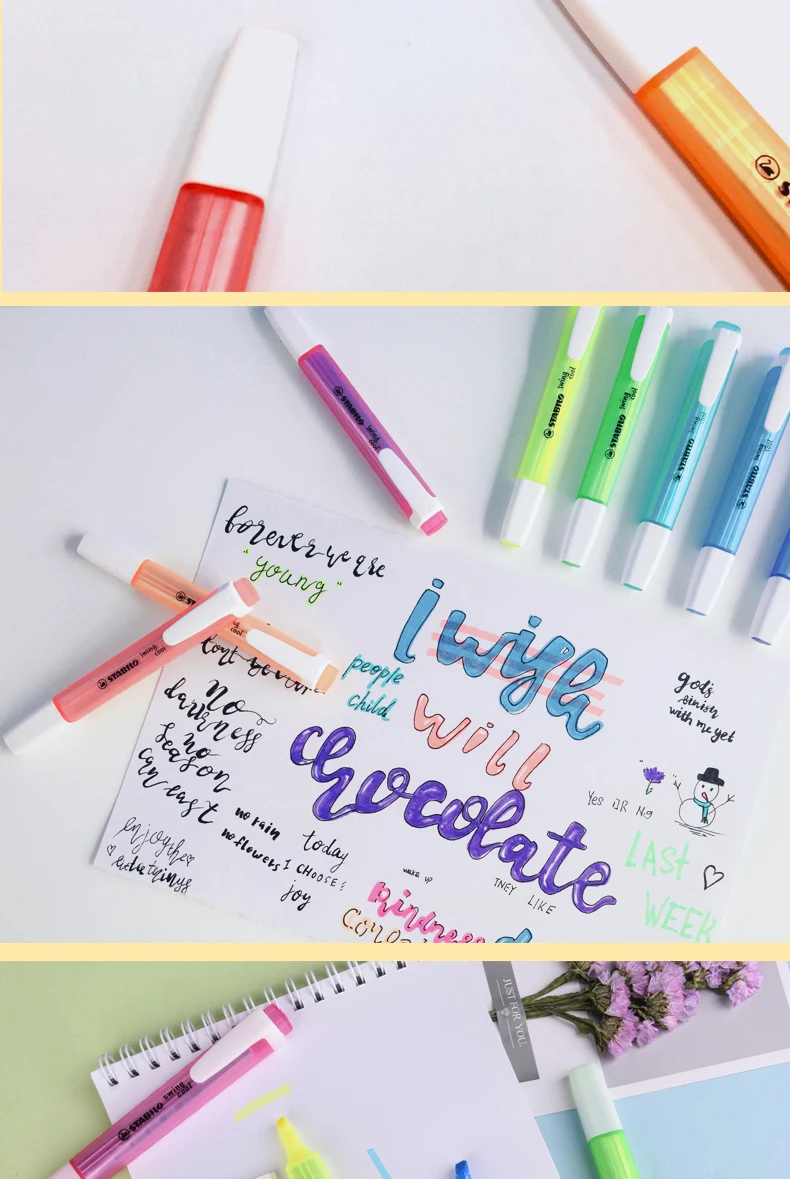 STABILO swing cool
STABILO swing cool
STABILO swing cool
STABILO swing cool
STABILO swing cool
forever we are
"young"
swing cool
STABILO swing cool
people
child
i wish
will
chocolate
god's
finish
with me yet
Yes OR No
no
darkness
no
season
can east
no rain
no flowers
enjoy the
little things
today
I CHOOSE
joy
wake up
THEY LIKE
LAST
WEEK
kindness
STABILO swing cool
JUST FOR YOU.